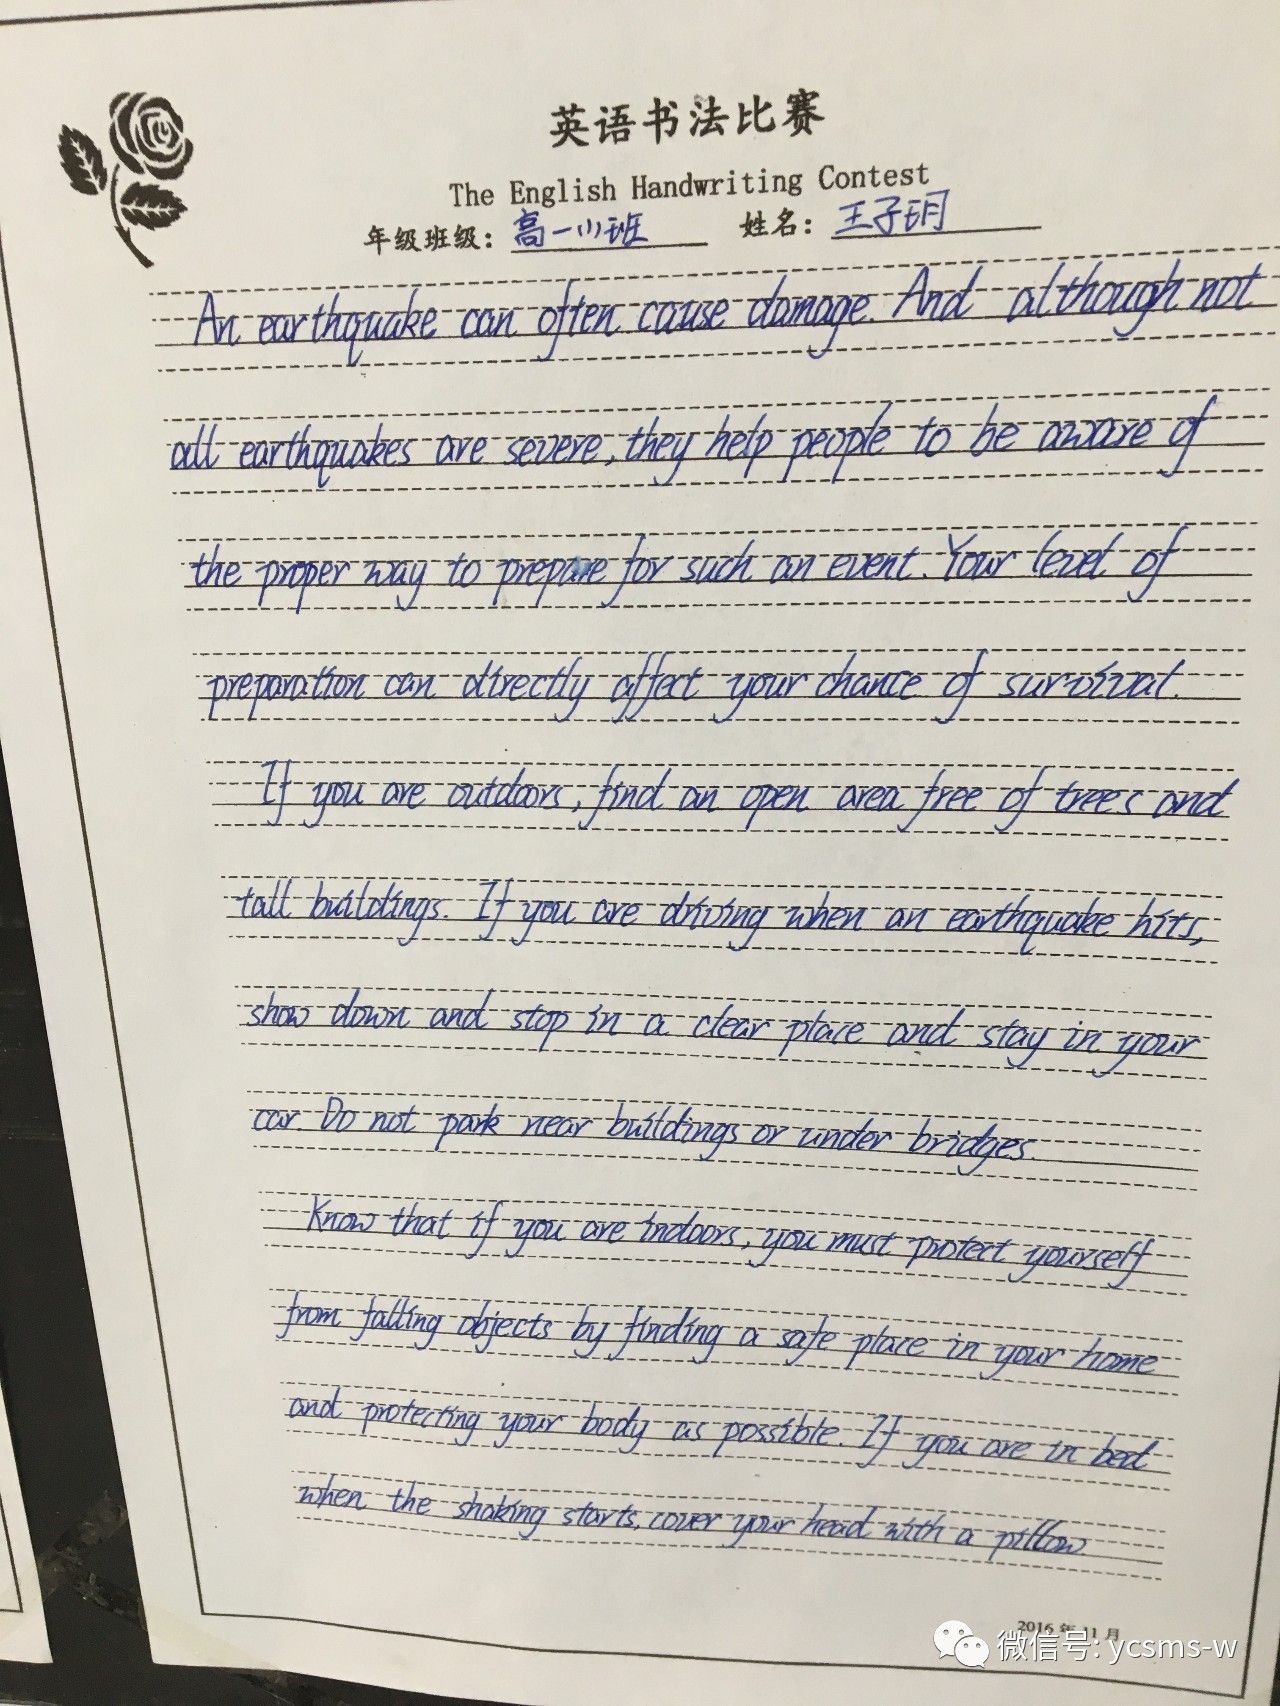 英语书法比赛
The English Handwriting Contest
年级班级: 高一小班 姓名: 王子玥
An earthquake can often cause damage. And although not
all earthquakes are severe, they help people to be aware of
the proper way to prepare for such an event. Your level of
preparation can directly affect your chance of survival.
If you are outdoors, find an open area free of trees and
tall buildings. If you are driving when an earthquake hits,
show down and stop in a clear place and stay in your
car. Do not park near buildings or under bridges.
Know that if you are indoors, you must protect yourself
from falling objects by finding a safe place in your home
and protecting your body as possible. If you are in bed
when the shaking starts, cover your head with a pillow.
2016 年 11 月
微信号: ycsms-w